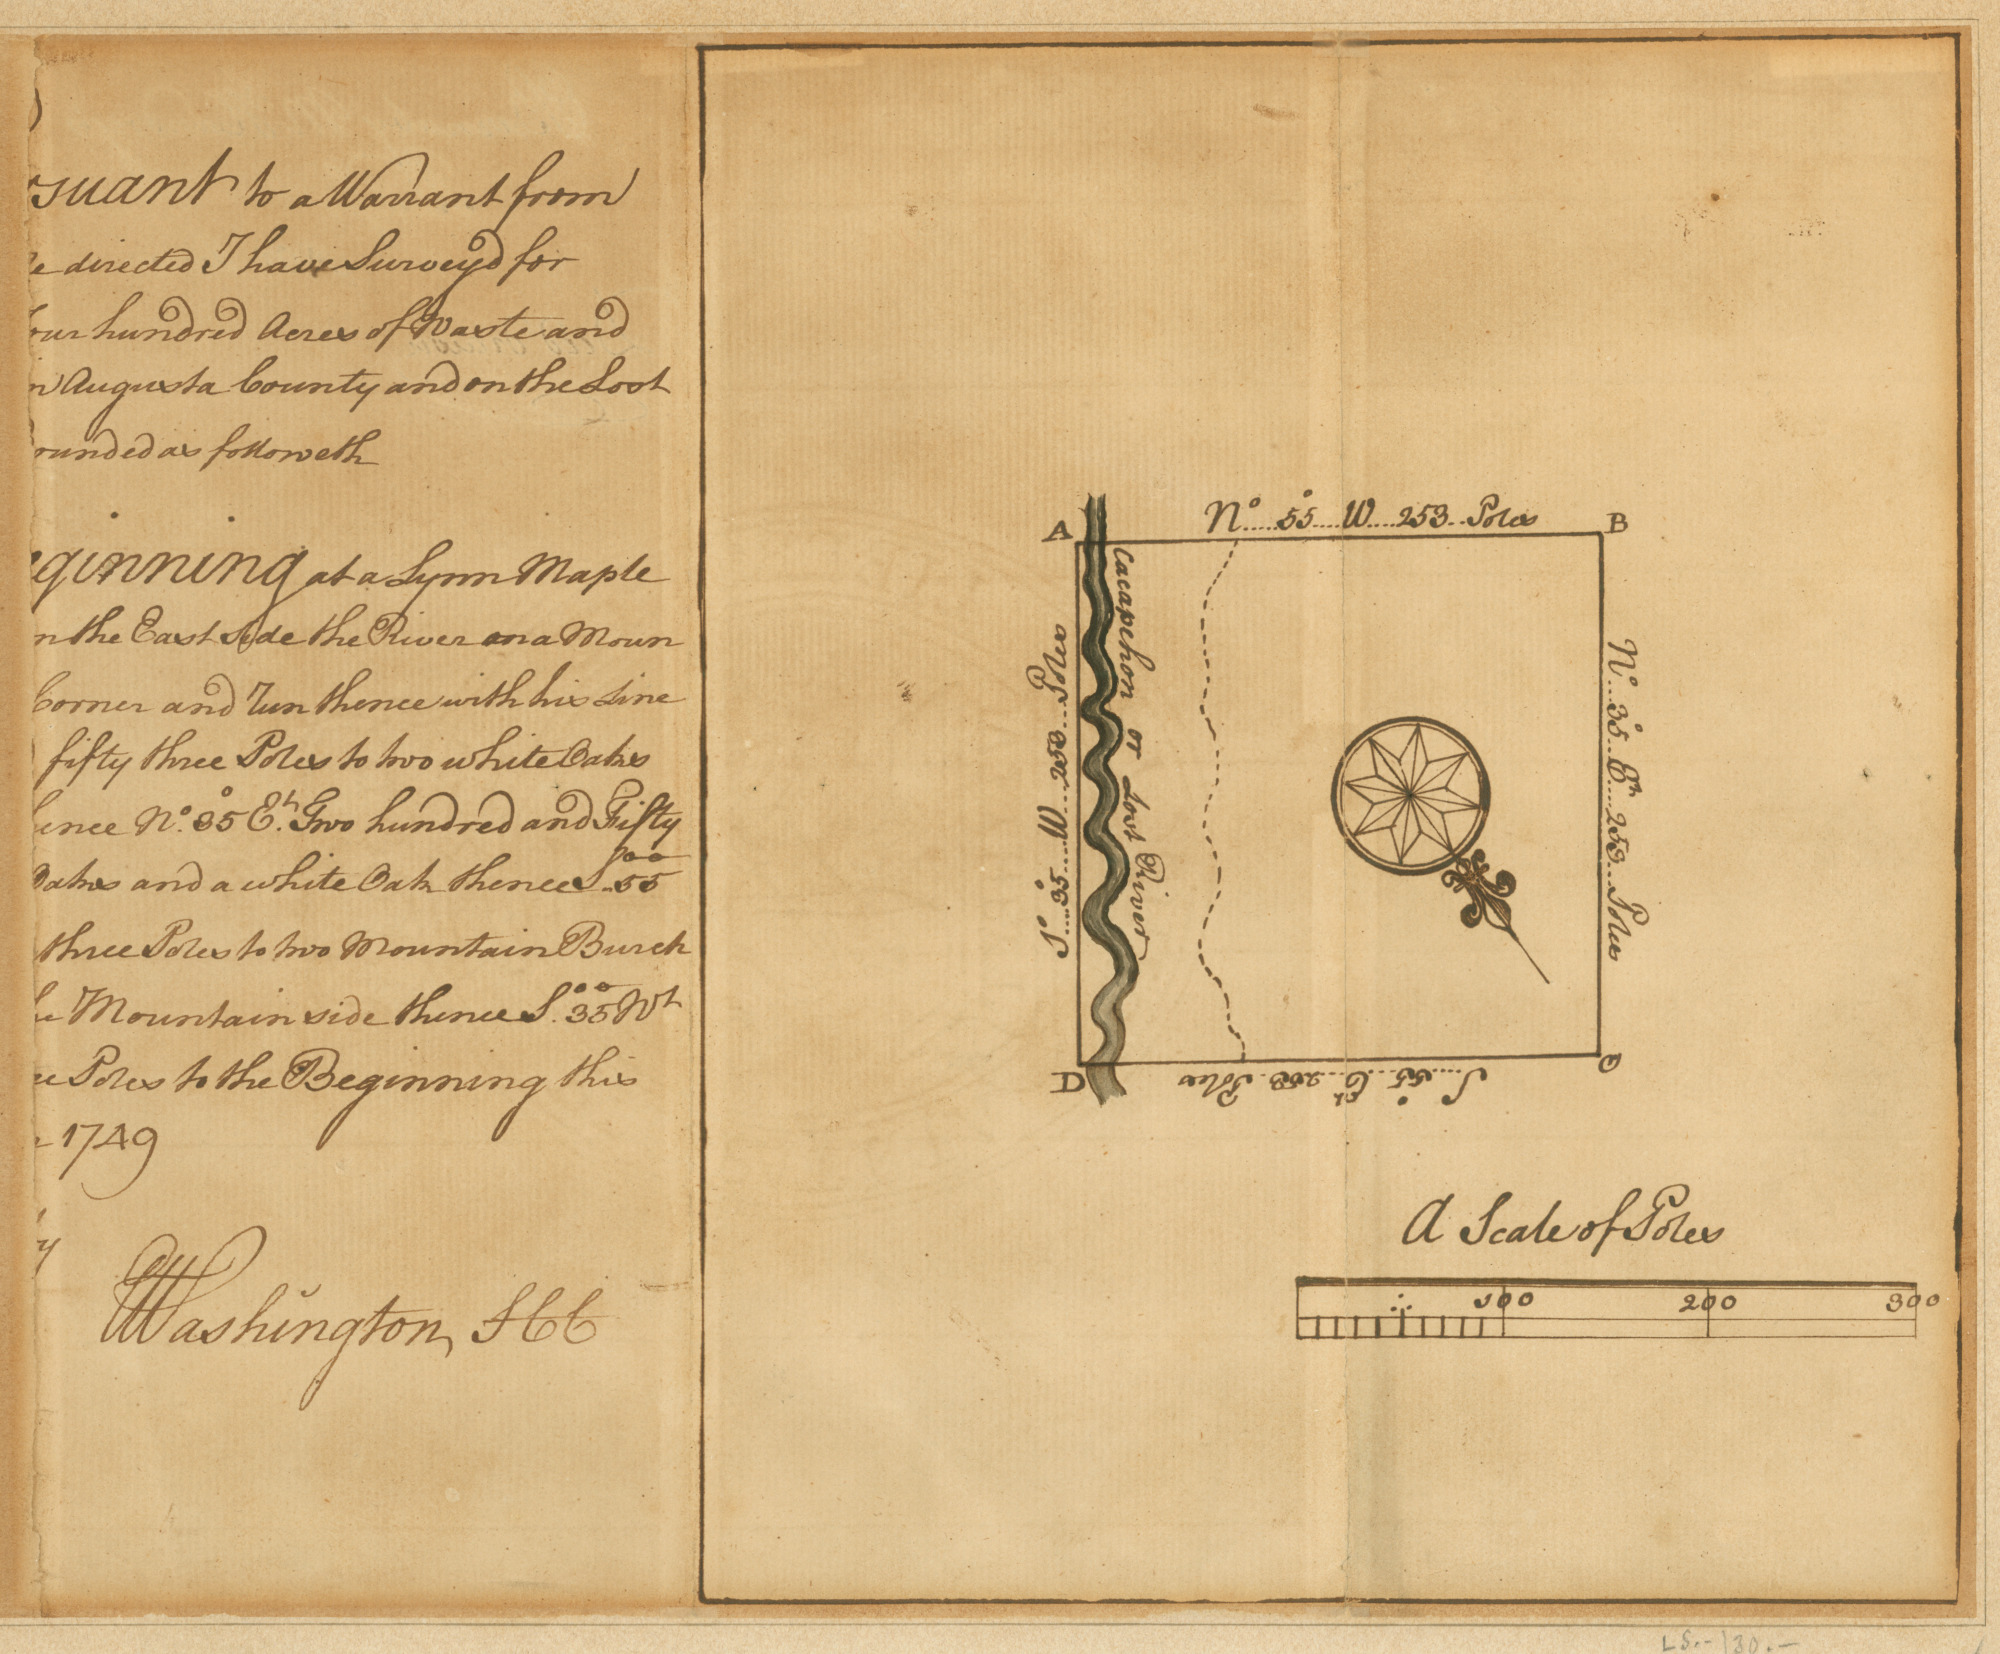 suant to a Warrant from
directed I have Survey'd for
our hundred Acres of Waste and
n Augusta County and on the Lost
unded as followeth
ginning at a Lynn Maple
n the East Side the River on a Moun
Corner and Run thence with his Line
fifty three Poles to two white Oakes
hence No. 35° Et. Two hundred and Fifty
Oakes and a white Oak thence S. 55
three Poles to two Mountain Burch
he Mountain side thence S. 35 Wt
ee Poles to the Beginning this
1749
y
Washington, SCC
A
No.....55°....W....253..Poles
B
Cacapehon or Lost River
S°....35°....W....253...Poles
N°....35°...Eth....253...Poles
D
C
S.....55°...Eth...253..Poles
A Scale of Poles
100 200 300
LS.-130.-